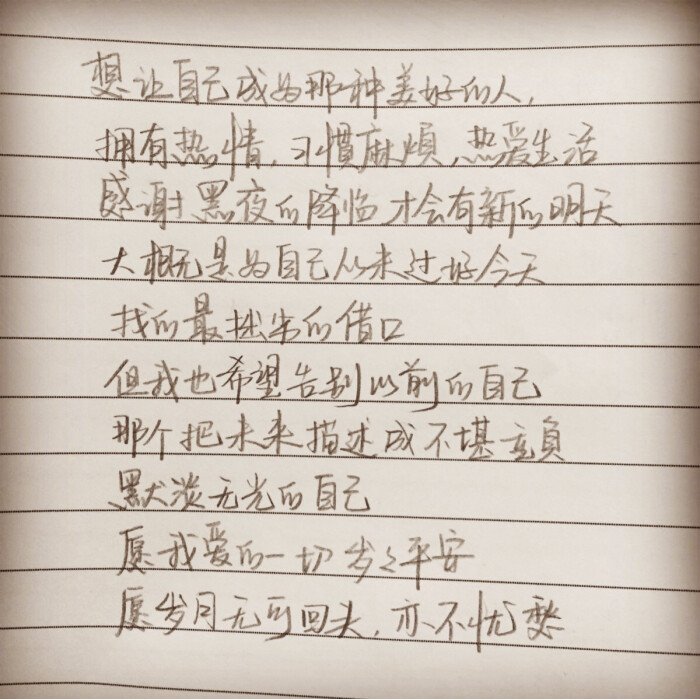 想让自己成为那种美好的人,
拥有热情,习惯麻烦,热爱生活
感谢黑夜的降临才会有新的明天
大概是为自己从未过好今天
找的最拙劣的借口
但我也希望告别以前的自己
那个把未来描述成不堪重负
黑犬淡无光的自己
愿我爱的一切岁々平安
愿岁月无可回头,亦不忧愁